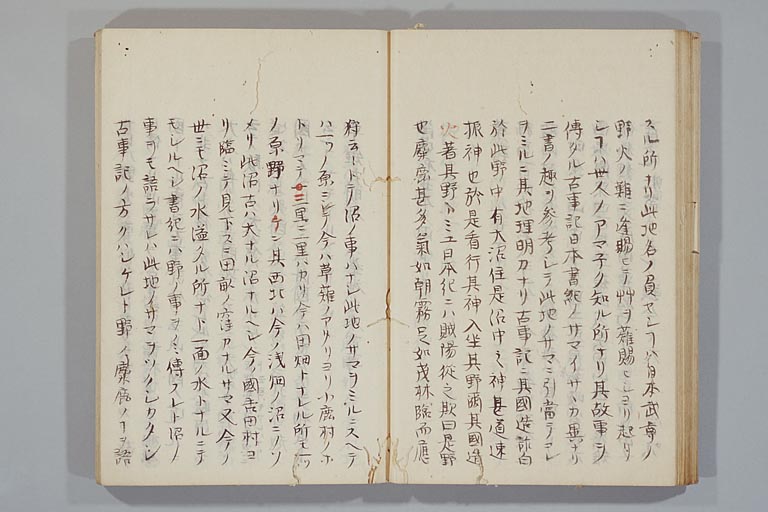 スル所ナリ此地名ノ負セシフハ日本武尊ノ
野火ノ難ニ逢賜ヒテ艸ヲ薙賜ヒシヨリ起リ
シフハ世人ノアマネク知ル所ナリ其故事ヲ
傳タル古事記日本書紀ノサマイサヽカ異ナリ
二書ノ趣ヲ参考シテ此地ノサマニ引當テヽコレ
ヲミルニ其地理明カナリ古事記ニ其國造詐白
於此野中有大沼住是沼中之神甚道速
振神也於是看行其神入坐其野爾其國造
火著其野トミユ日本紀ニハ賊陽從之欺曰是野
也麋鹿甚多氣如朝霧足如茂林臨而應
狩云々トテノ沼ノ事ハナシ此地ノサマヲミルニスヘテ
ハ一ツノ原ニテ今ハ草薙ノアタリヨリ小鹿村ノホ
トリマテ三里二里ハカリ今ハ田畑トナレル所モ一ツ
ノ原野ナリケン其西北ハ今ノ浅畑ノ沼ニノソ
メリ此沼古ハ大ナル沼ナルヘシ今ノ國吉田村ヨ
リ臨ミテ見下スニ田畝ノ窪カナルサマ又今ノ
世ニモ沼ノ水溢タル所ナト一面ノ水トナルニテ
モシルヘシ書紀ニハ野ノ事ヲノミ傳フレト沼ノ
事ヲモ語ラサレハ此地ノサマヲツクシカタシ
古事記ノ方クハシケレト野ノ麋鹿ノフヲ語